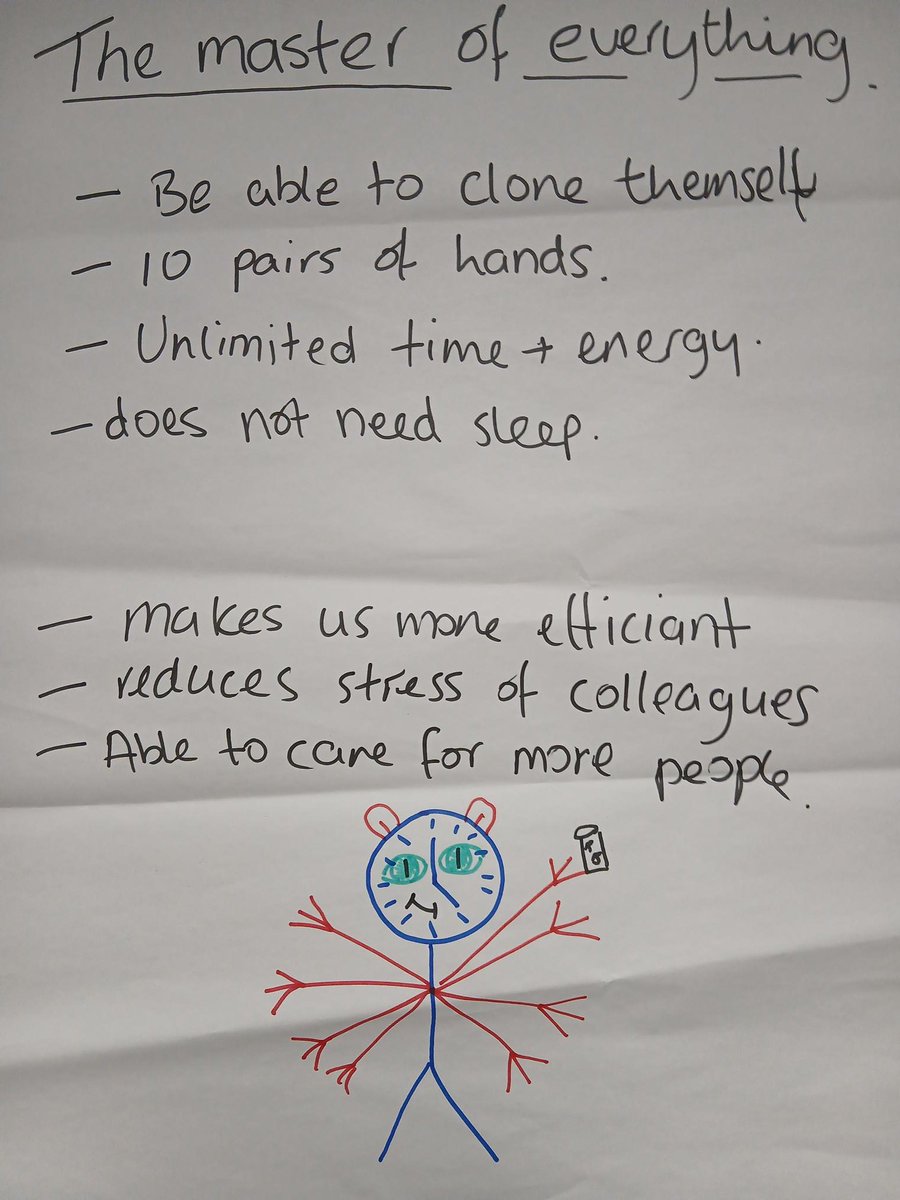 The master of everything.
- Be able to clone themself
- 10 pairs of hands.
- Unlimited time + energy.
- does not need sleep.
- makes us more efficiant
- reduces stress of colleagues
- Able to care for more people.